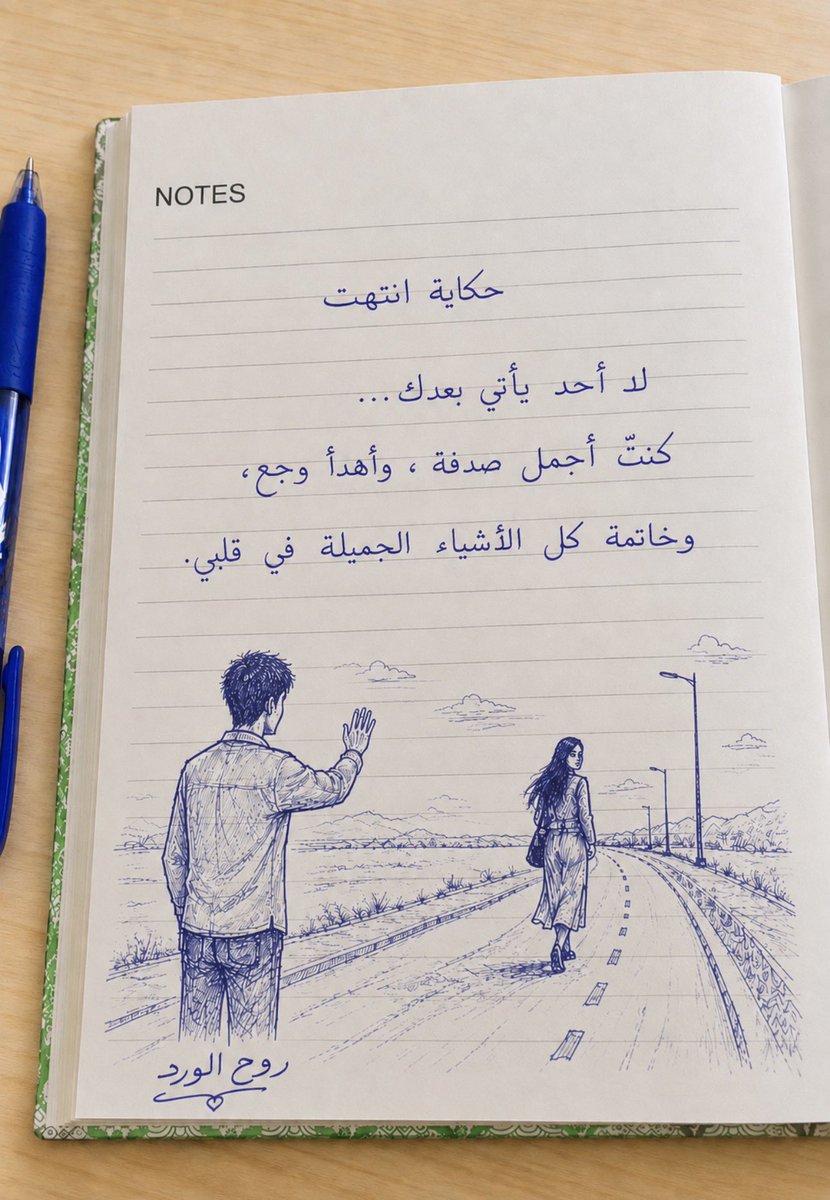 NOTES
حكاية انتهت
لا أحد يأتي بعدك...
كنتّ أجمل صدفة ، وأهدأ وجع،
وخاتمة كل الأشياء الجميلة في قلبي.
روح الورد